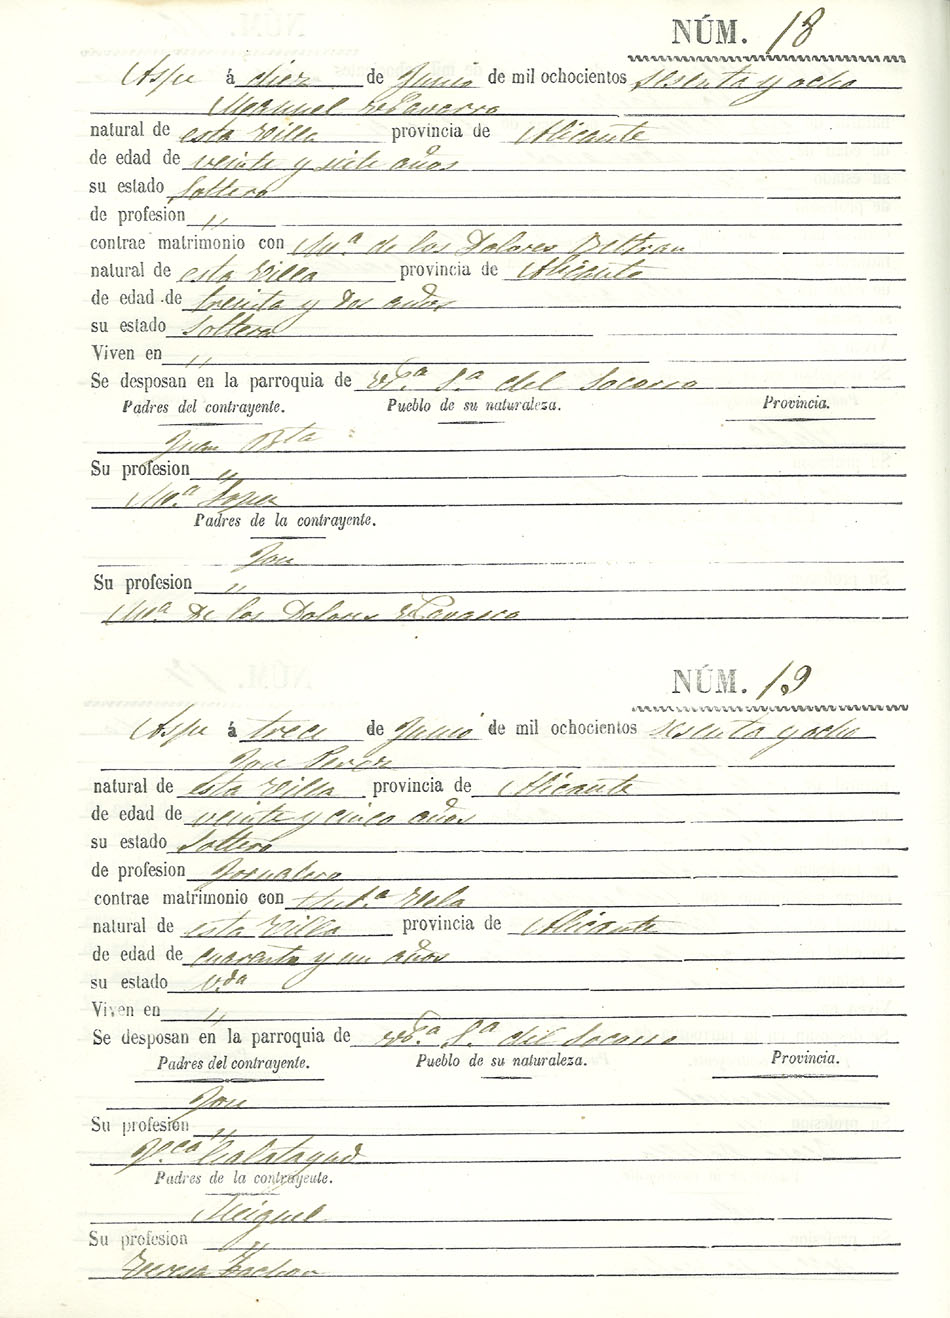 NÚM. 18
Aspe á diez de Junio de mil ochocientos sesenta y ocho
Manuel Navarro
natural de esta Villa provincia de Alicante
de edad de veinte y siete años
su estado Soltero
de profesion "
contrae matrimonio con Mª de los Dolores Beltran
natural de esta Villa provincia de Alicante
de edad de treinta y dos años
su estado Soltera
Viven en "
Se desposan en la parroquia de Nª Sª del Socorro
Padres del contrayente. Pueblo de su naturaleza. Provincia.
Juan Bta
Su profesion "
Mª Lopez
Padres de la contrayente.
Jose
Su profesion "
Mª De los Dolores
NÚM. 19
Aspe á trece de Junio de mil ochocientos sesenta y ocho
Jose Perez
natural de esta Villa provincia de Alicante
de edad de veinte y cinco años
su estado Soltero
de profesion Jornalero
contrae matrimonio con
natural de esta Villa provincia de Alicante
de edad de cuarenta y un años
su estado Vda
Viven en "
Se desposan en la parroquia de Nª Sª del Socorro
Padres del contrayente. Pueblo de su naturaleza. Provincia.
Jose
Su profesion "
Fcca Calatayud
Padres de la contrayente.
Miguel
Su profesion "
Teresa